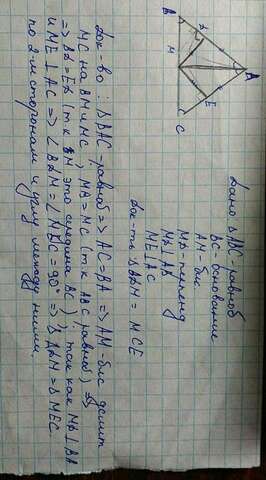 B
D
M
A
E
C
Дано: △ABC-равноб
BC-основание
AM-бис
MD-перпенд
MD⊥AB
ME⊥AC
Док-ть △BDM = MCE
Док-во: △BAC-равноб => AC=BA => AM-бис делит
MC на BM и MC, MB=MC (т.к ABC равноб) =>
=> BD=EC (т.к M это середина BC), так как MD⊥BA
и ME⊥AC => ∠BDM=∠MEC=90° => △BDM=△MEC.
по 2-м сторонам и углу между ними.